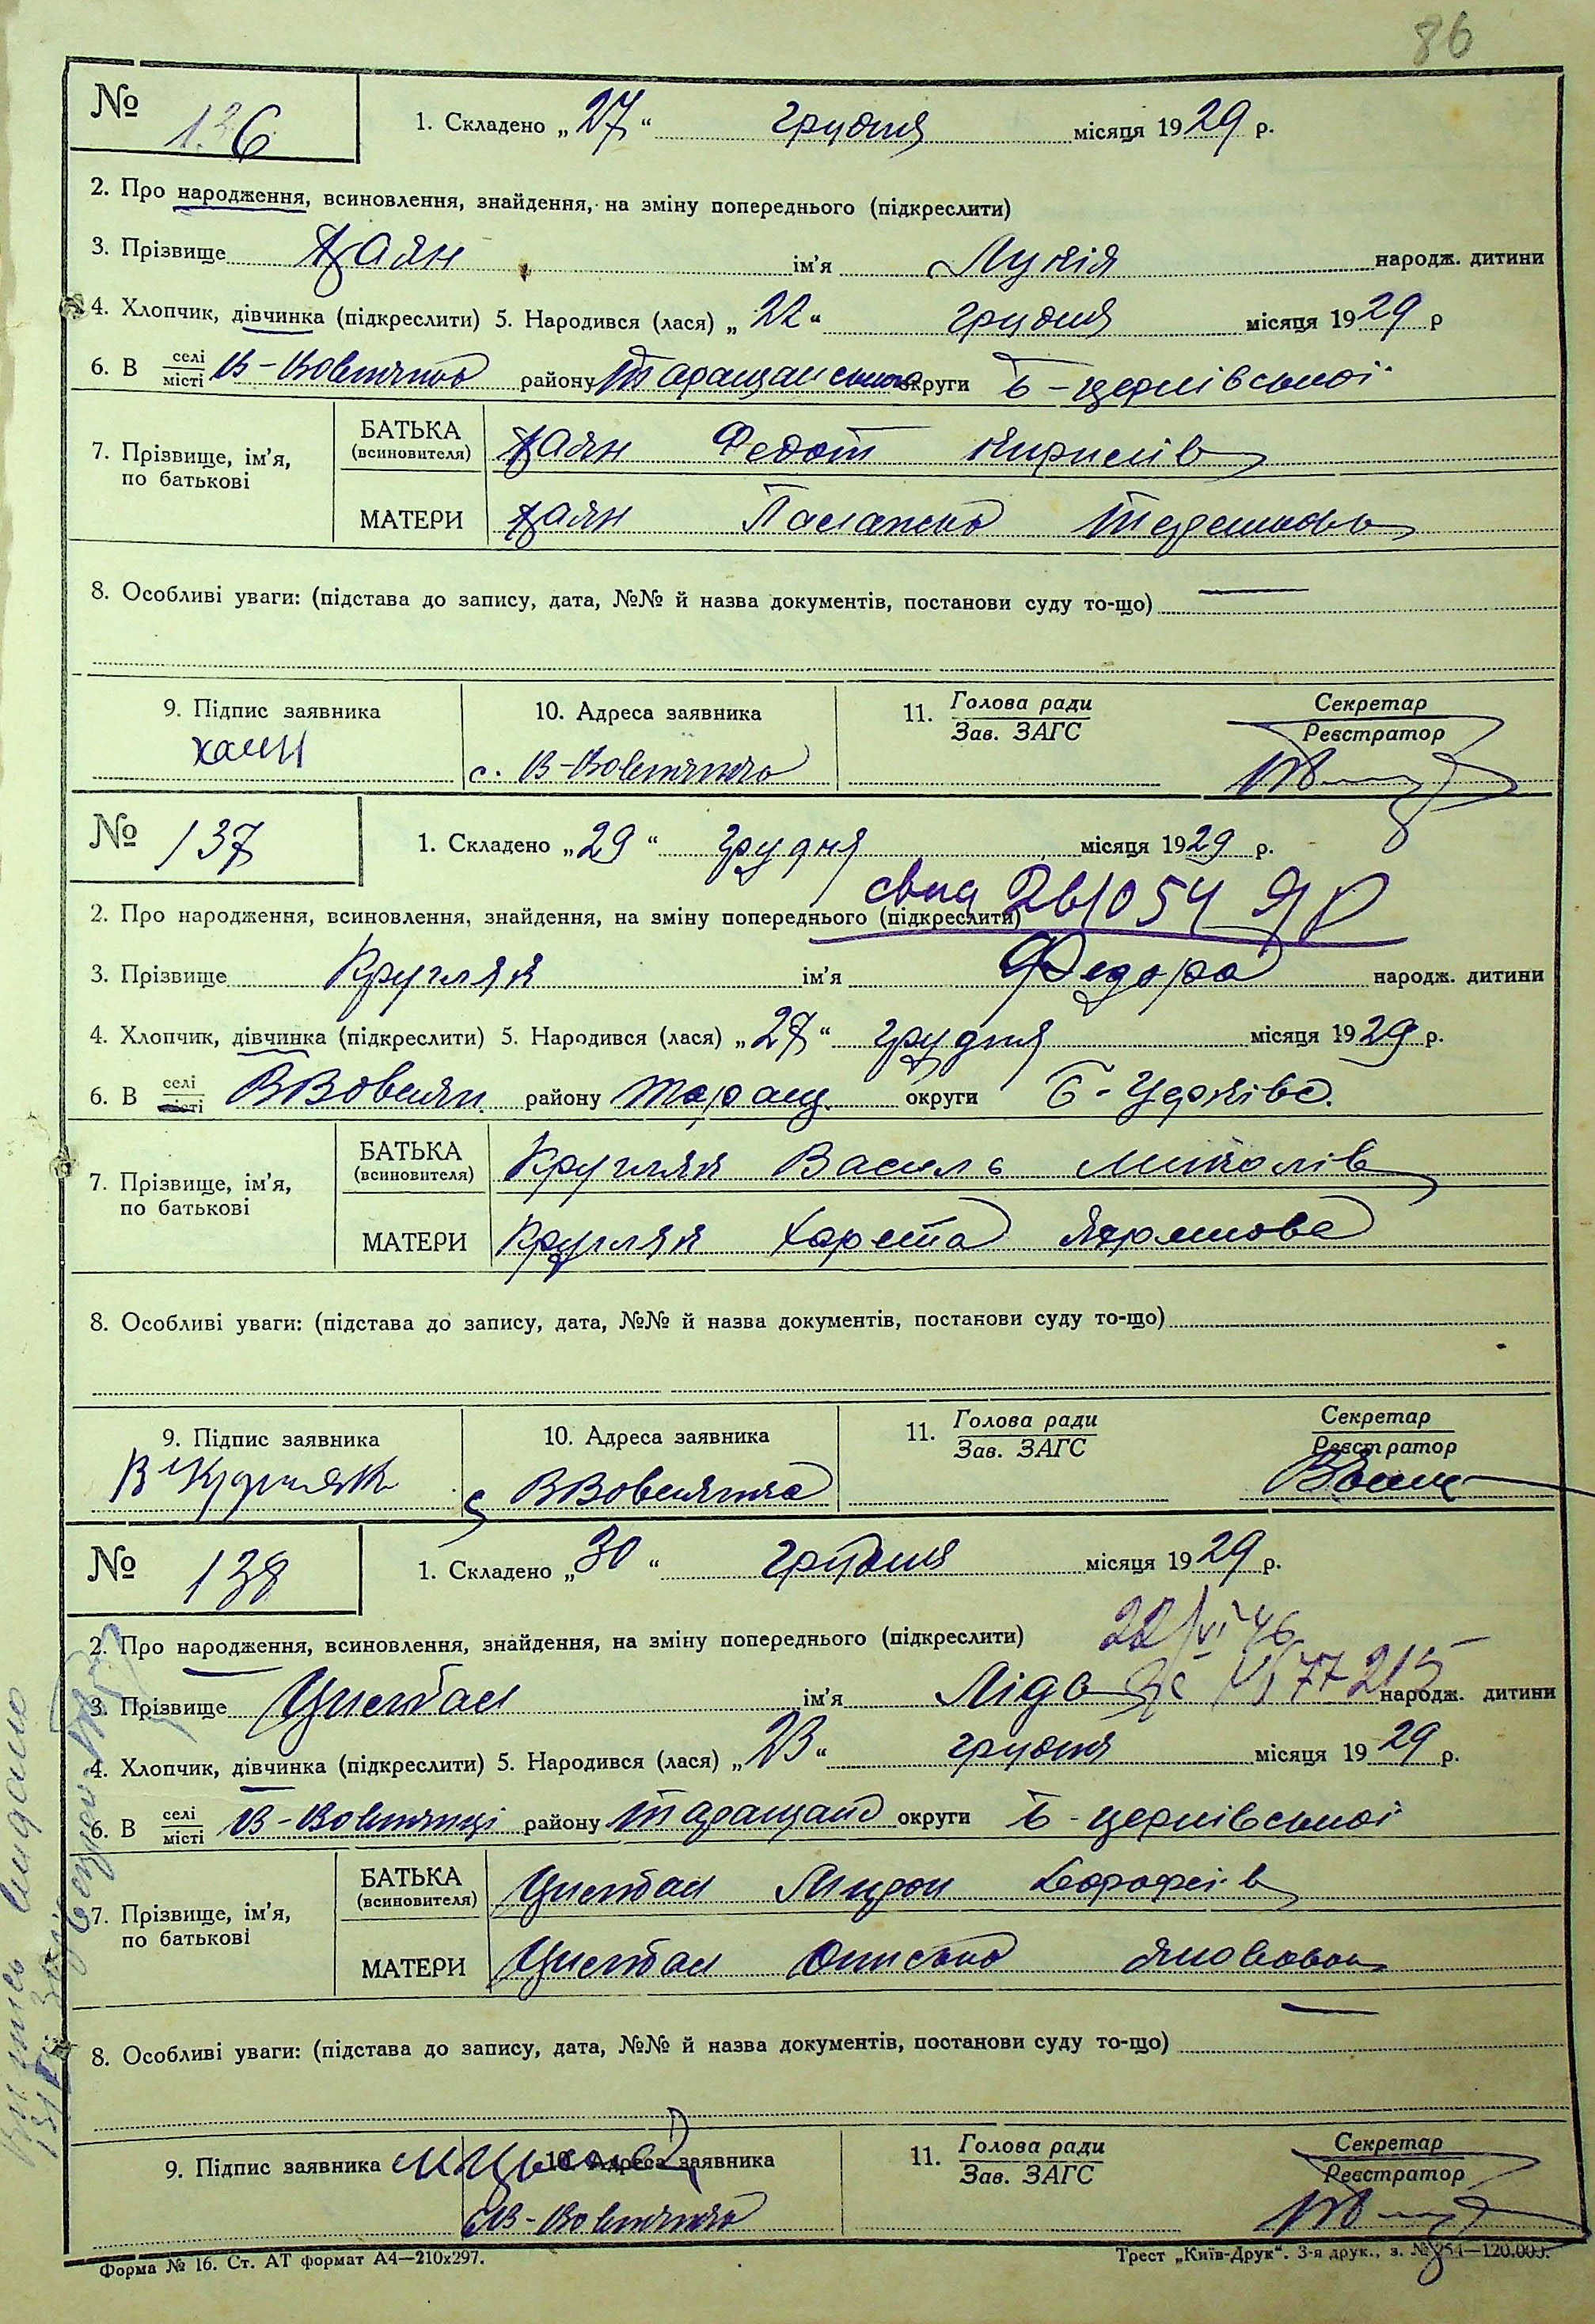 86
№ 136
1. Складено „27“ грудня місяця 1929 р.
2. Про народження, всиновлення, знайдення, на зміну попереднього (підкреслити)
3. Прізвище Хаян ім’я Лукія народж. дитини
4. Хлопчик, дівчинка (підкреслити) 5. Народився (лася) „22“ грудня місяця 1929 р
6. В селі місті В-Вовнянка району Таращанського округи Б-церківської
7. Прізвище, ім’я, по батькові
БАТЬКА (всиновителя) Хаян Федот Кирилів
МАТЕРИ Хаян Палажка
8. Особливі уваги: (підстава до запису, дата, №№ й назва документів, постанови суду то-що) —
9. Підпис заявника 10. Адреса заявника 11. Голова ради Зав. ЗАГС Секретар Реєстратор
с. В-Вовнянка
№ 137
1. Складено „29“ грудня місяця 1929 р.
2. Про народження, всиновлення, знайдення, на зміну попереднього (підкреслити)
3. Прізвище Кругляк ім’я Федора народж. дитини
4. Хлопчик, дівчинка (підкреслити) 5. Народився (лася) „27“ грудня місяця 1929 р.
6. В селі місті ВВовнян. району Таращ. округи Б-Церківс.
7. Прізвище, ім’я, по батькові
БАТЬКА (всиновителя) Кругляк Василь Миколів
МАТЕРИ Кругляк
8. Особливі уваги: (підстава до запису, дата, №№ й назва документів, постанови суду то-що)
9. Підпис заявника 10. Адреса заявника 11. Голова ради Зав. ЗАГС Секретар Реєстратор
В Кругляк с ВВовнянка
№ 138
1. Складено „30“ грудня місяця 1929 р.
2. Про народження, всиновлення, знайдення, на зміну попереднього (підкреслити)
22/VI 46
3. Прізвище Цимбал ім’я Ліда народж. дитини
4. Хлопчик, дівчинка (підкреслити) 5. Народився (лася) „23“ грудня місяця 1929 р.
6. В селі місті В-Вовнянці району Таращан округи Б-церківської
7. Прізвище, ім’я, по батькові
БАТЬКА (всиновителя) Цимбал Мирон Дорофеїв
МАТЕРИ Цимбал Яковова
8. Особливі уваги: (підстава до запису, дата, №№ й назва документів, постанови суду то-що) —
9. Підпис заявника 10. Адреса заявника 11. Голова ради Зав. ЗАГС Секретар Реєстратор
В-Вовнянка
Форма № 16. Ст. АТ формат А4—210х297. Трест „Київ-Друк“. 3-я друк., з. № 254—120.000.